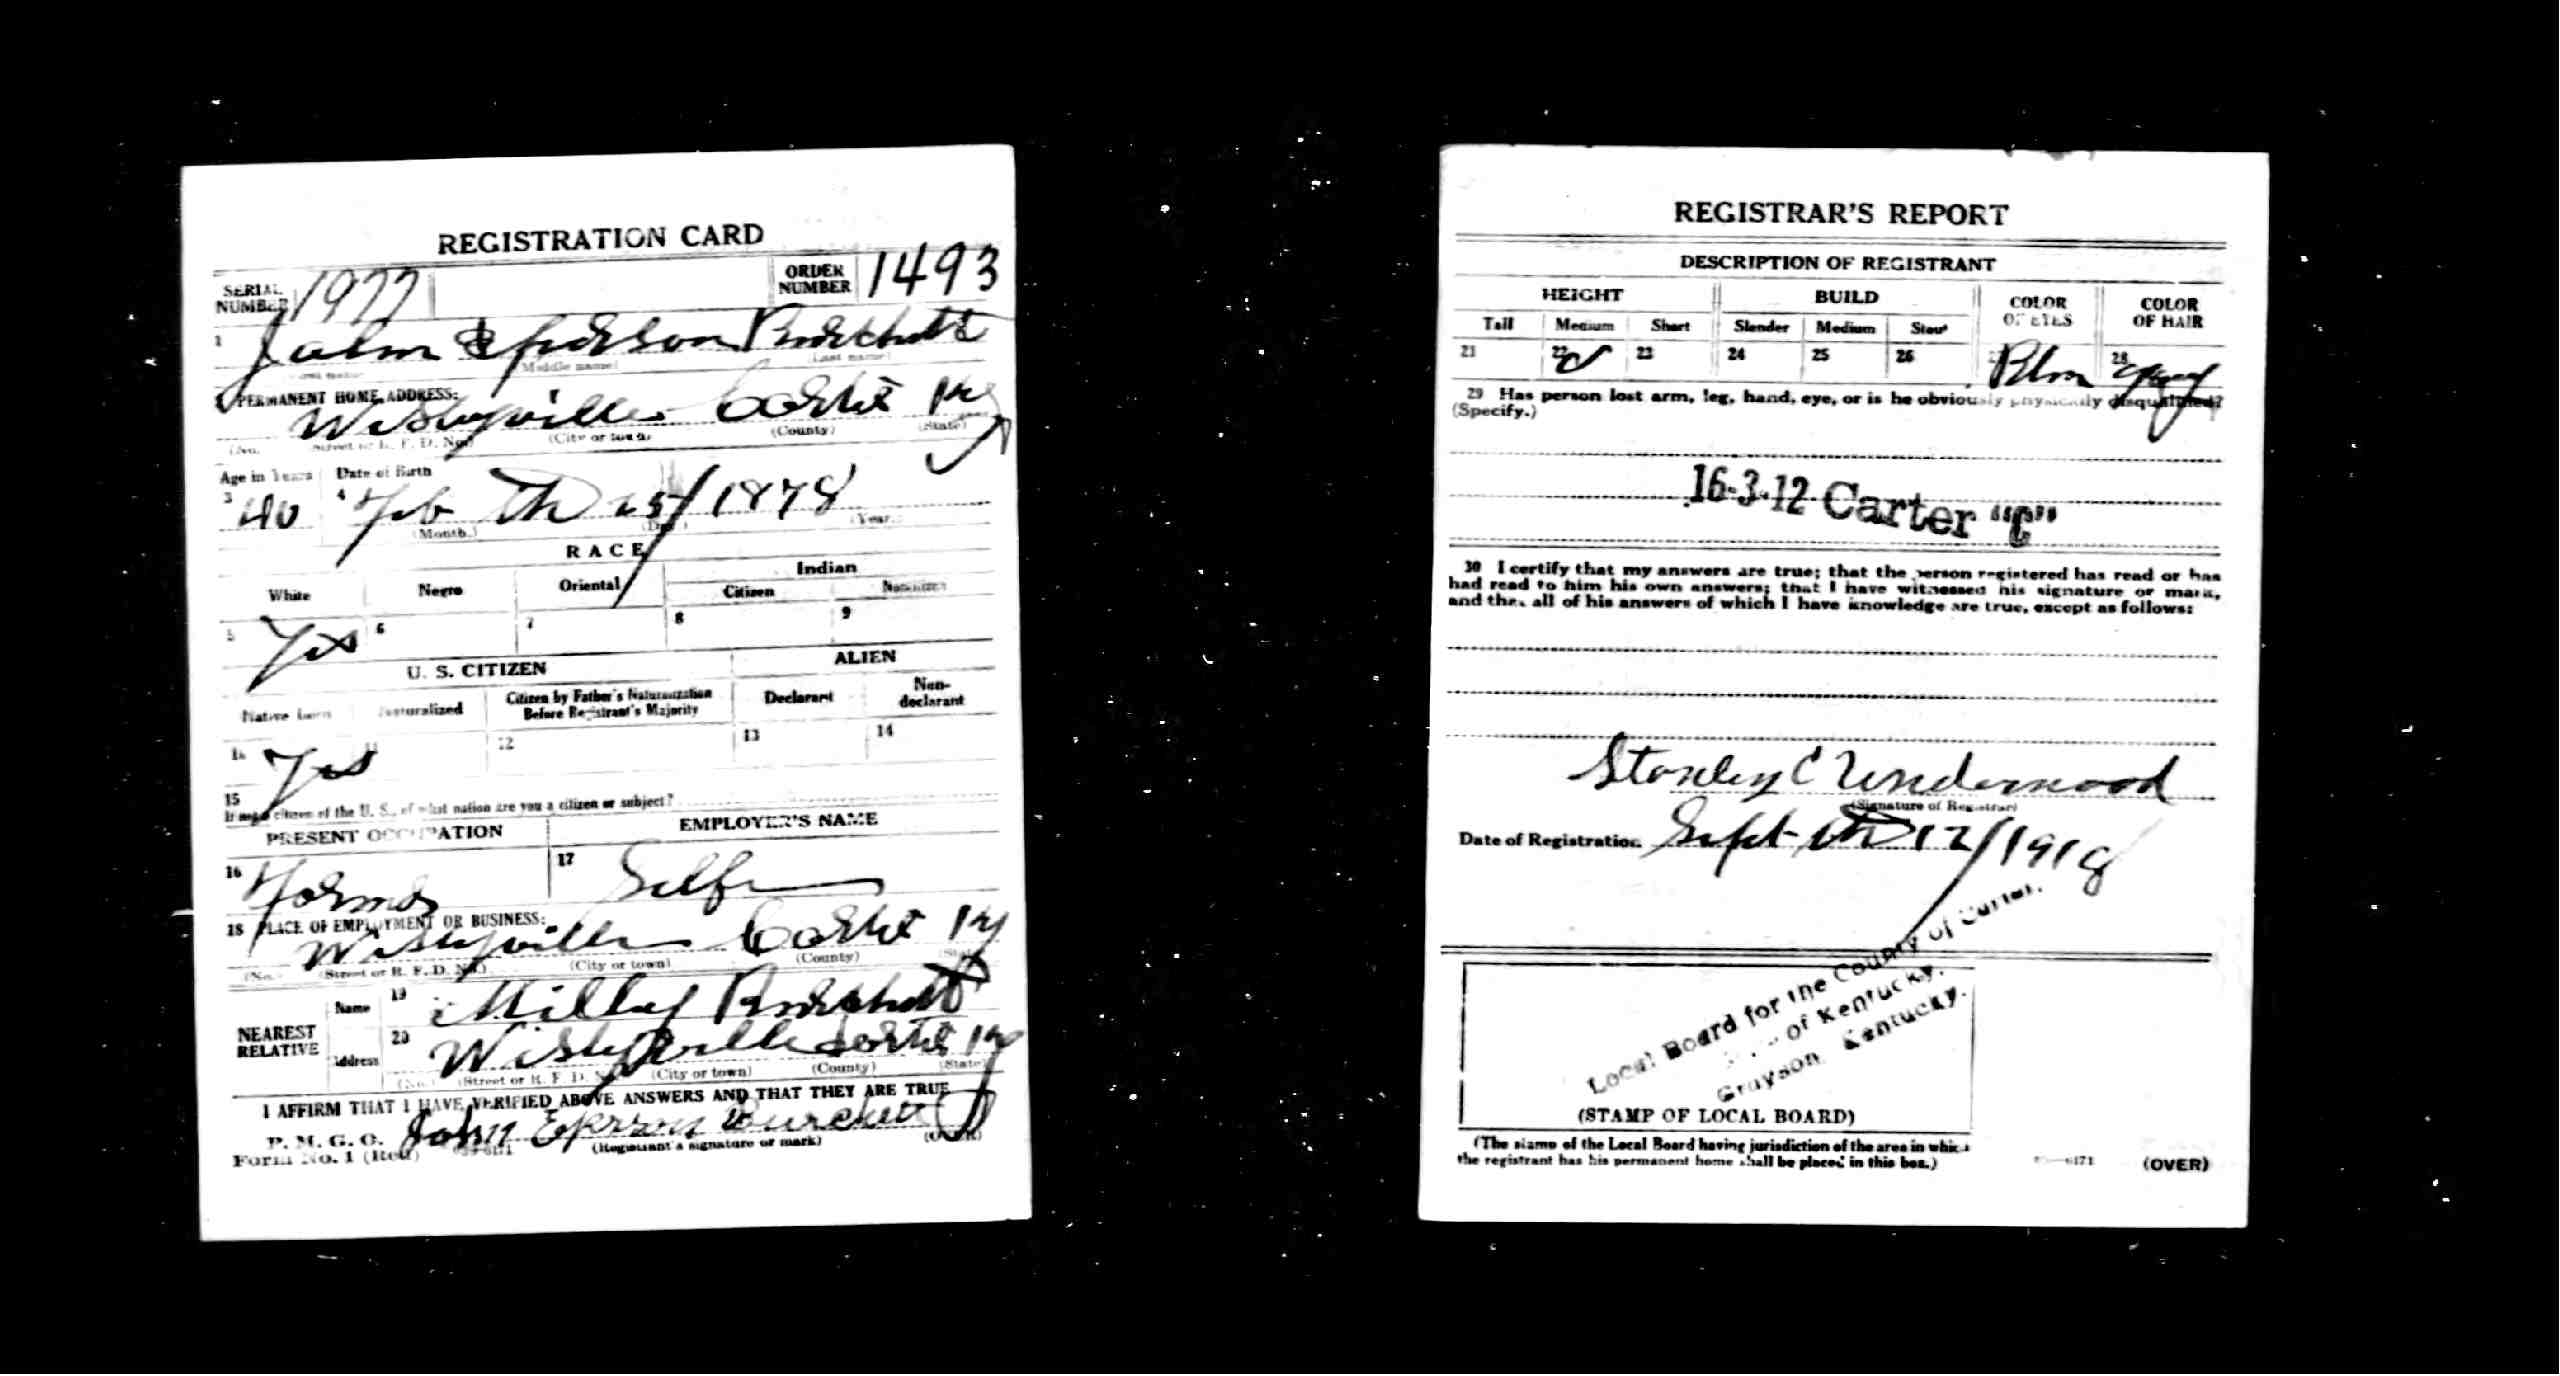 REGISTRATION CARD
SERIAL NUMBER 1977 ORDER NUMBER 1493
1 John Eperson Burchett
(Middle name) (Last name)
2 PERMANENT HOME ADDRESS:
Wesleyville Carter Ky
(No.) (Street or R. F. D. No.) (City or town) (County) (State)
Age in Years Date of Birth
3 40 4 Feb th 25/1878
(Month.) (Day.) (Year.)
RACE
White Negro Oriental Indian
Citizen Noncitizen
5 Yes 6 7 8 9
U. S. CITIZEN ALIEN
Native born Naturalized Citizen by Father's Naturalization Before Registrant's Majority Declarant Non-declarant
10 Yes 11 12 13 14
15
If not a citizen of the U. S., of what nation are you a citizen or subject?
PRESENT OCCUPATION EMPLOYER'S NAME
16 17 Self
18 PLACE OF EMPLOYMENT OR BUSINESS:
Wesleyville Carter Ky
(No.) (Street or R. F. D. No.) (City or town) (County) (State)
NEAREST RELATIVE
Name 19 Burchett
Address 20 Wesleyville Carter Ky
(No.) (Street or R. F. D. No.) (City or town) (County) (State)
I AFFIRM THAT I HAVE VERIFIED ABOVE ANSWERS AND THAT THEY ARE TRUE
P. M. G. O. John Eperson Burchett
Form No. 1 (Red) (Registrant's signature or mark) (OVER)
REGISTRAR'S REPORT
DESCRIPTION OF REGISTRANT
HEIGHT BUILD COLOR OF EYES COLOR OF HAIR
Tall Medium Short Slender Medium Stout
21 22 23 24 25 26 28
29 Has person lost arm, leg, hand, eye, or is he obviously physically disqualified?
(Specify.)
16-3-12 Carter "C"
30 I certify that my answers are true; that the person registered has read or has
had read to him his own answers; that I have witnessed his signature or mark,
and that all of his answers of which I have knowledge are true, except as follows:
Stanley C Underwood
(Signature of Registrar)
Date of Registration Sept th 12/1918
Local Board for the County of Carter,
of Kentucky,
Grayson, Kentucky.
(STAMP OF LOCAL BOARD)
(The stamp of the Local Board having jurisdiction of the area in which
the registrant has his permanent home shall be placed in this box.)
(OVER)